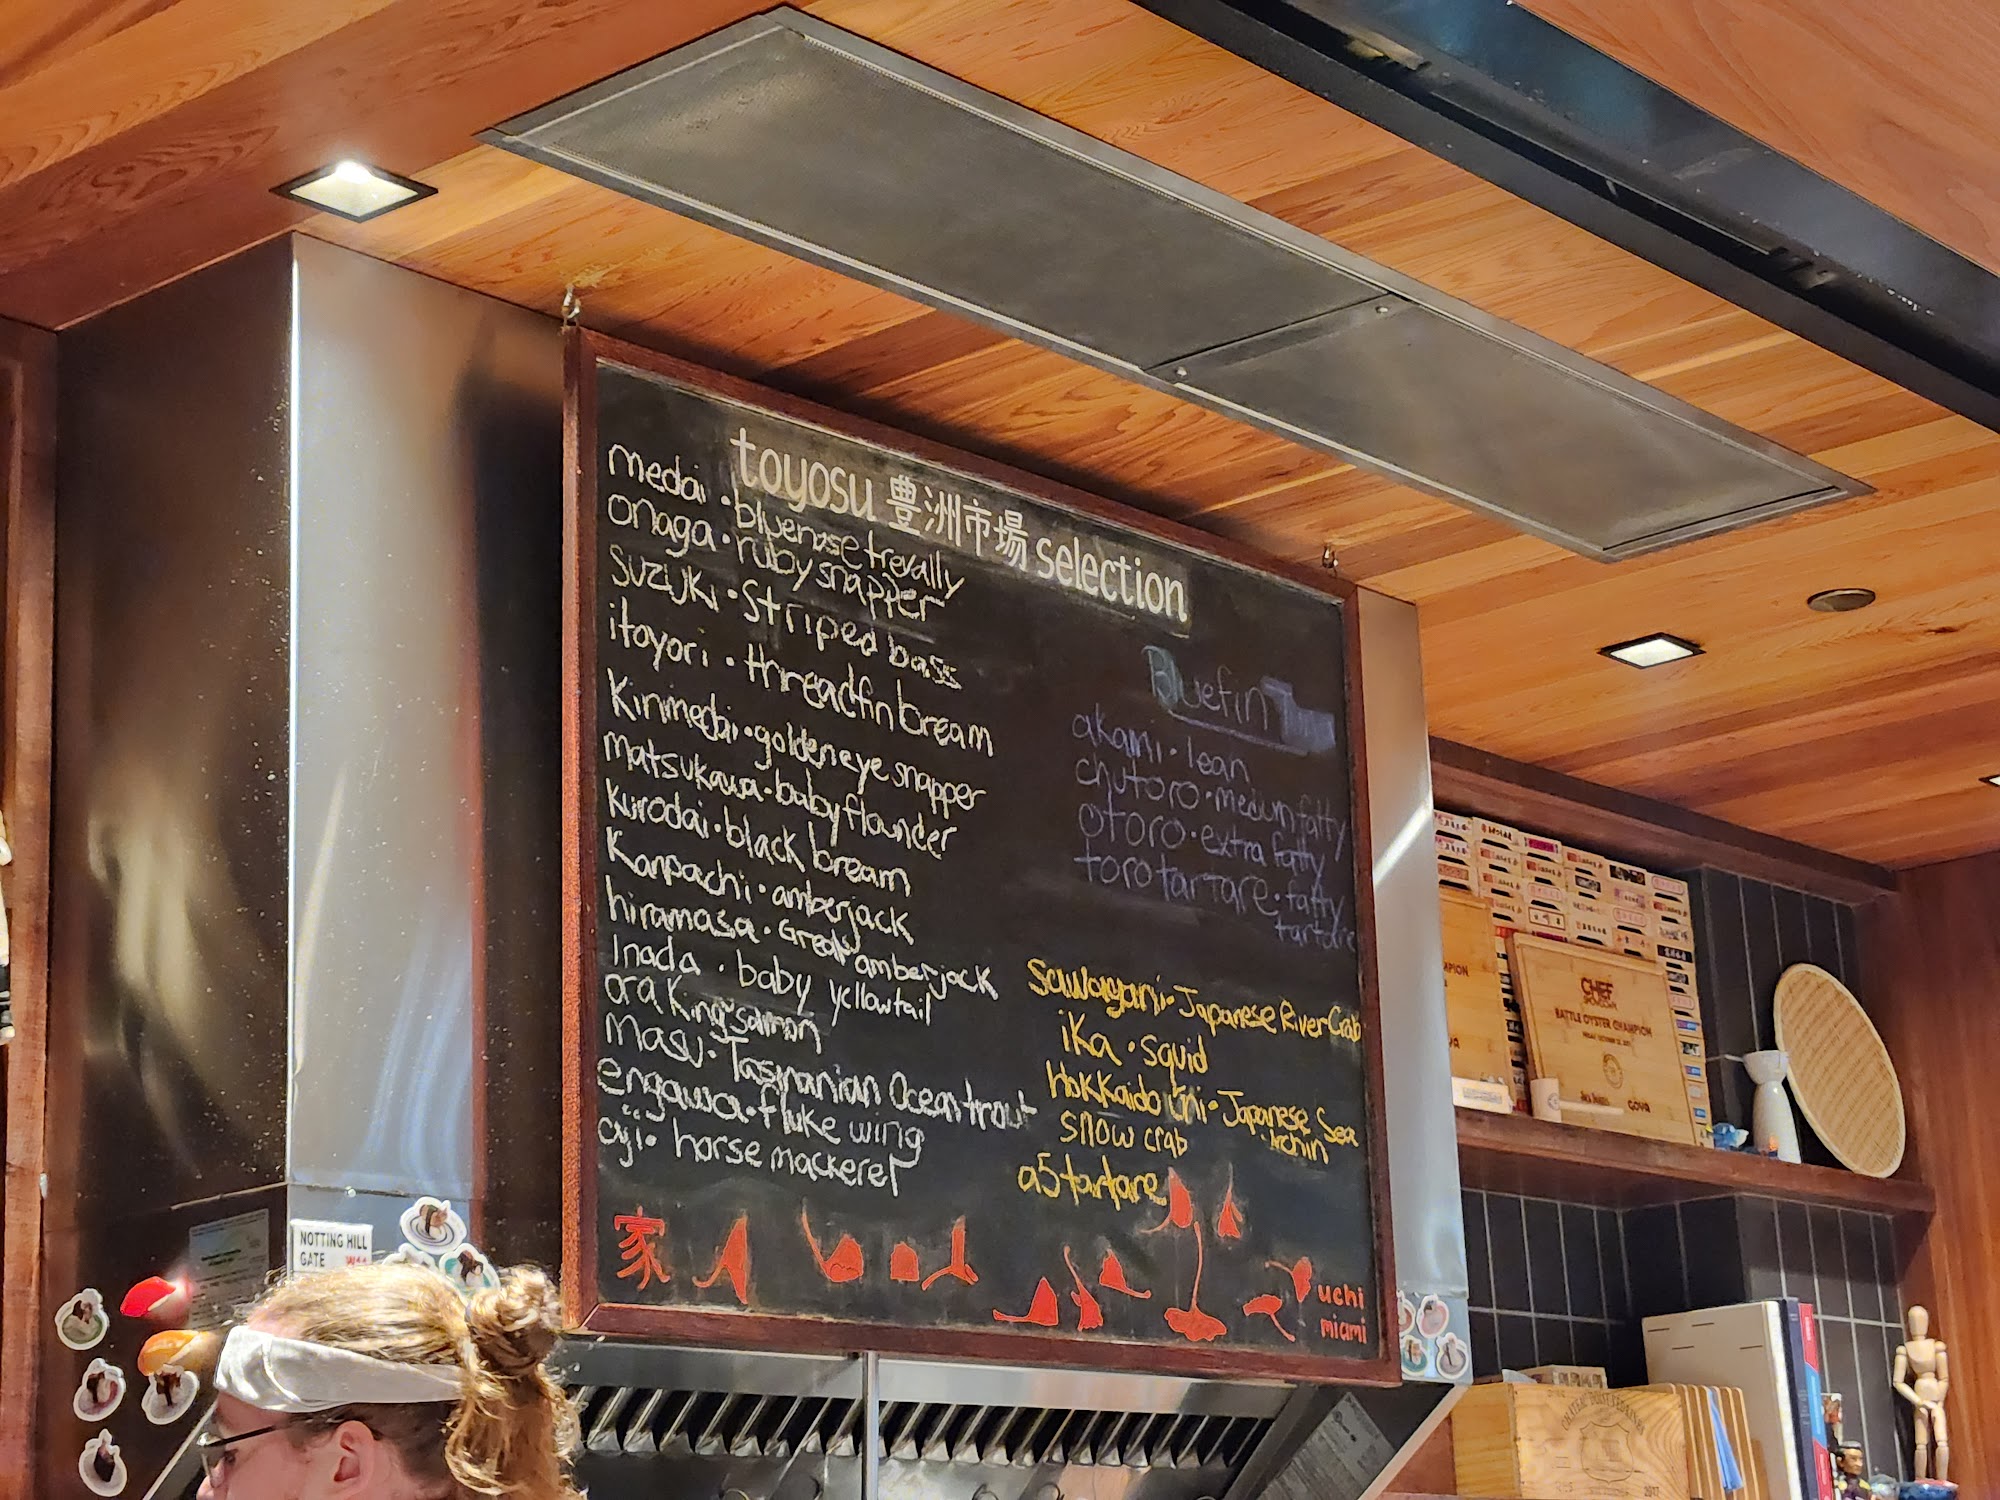 toyosu 豊洲市場 selection
medai · bluenose trevally
onaga · ruby snapper
suzuki · striped bass
itoyori · threadfin bream
kinmedai · goldeneye snapper
matsukawa · baby flounder
kurodai · black bream
kanpachi · amberjack
hiramasa · Great amberjack
Inada · baby yellowtail
ora king salmon
masu · Tasmanian Ocean trout
engawa · fluke wing
aji · horse mackerel
Bluefin
akami · lean
chutoro · medium fatty
otoro · extra fatty
toro tartare · fatty
tartare
Sawagani · Japanese River Crab
ika · squid
Hokkaido Uni · Japanese Sea
Urchin
snow crab
a5 tartare
家
uchi
miami
NOTTING HILL
GATE W11
CHEF
BATTLE OYSTER CHAMPION
GOYA